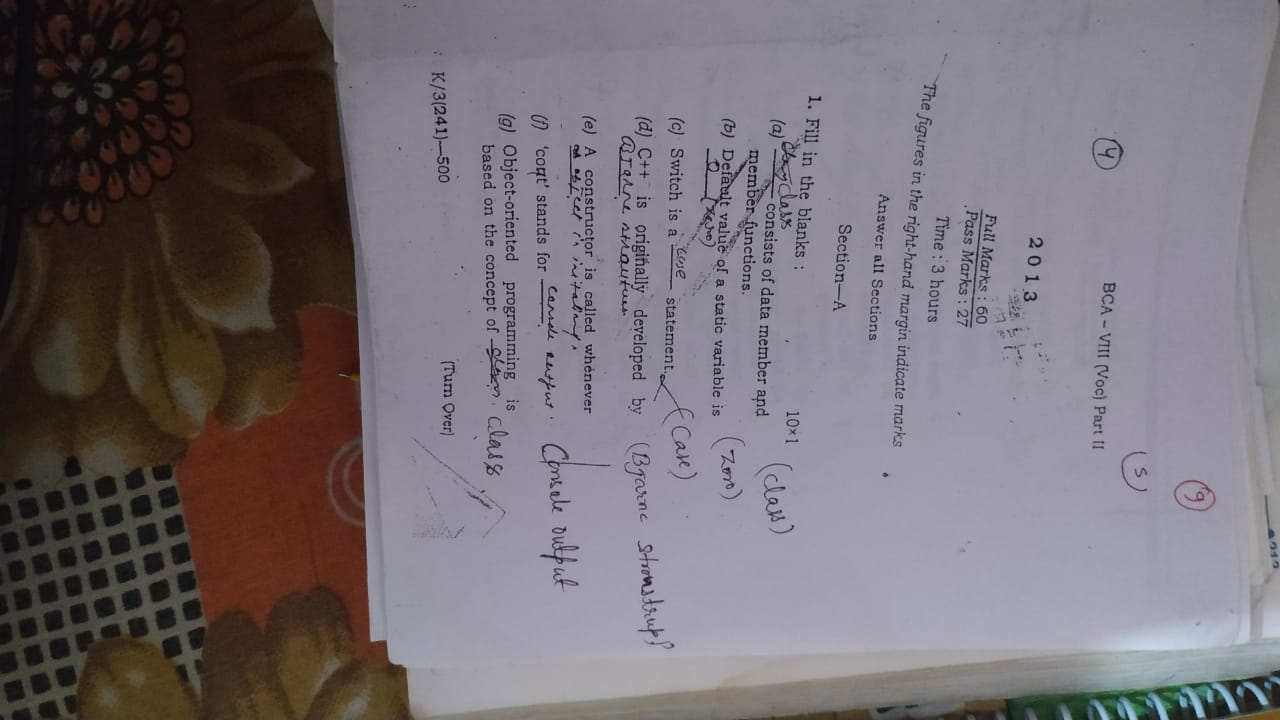 (9)
(5)
(4)
BCA – VIII (Voc) Part II
2 0 1 3
Full Marks : 60
Pass Marks : 27
Time : 3 hours
The figures in the right-hand margin indicate marks
Answer all Sections
Section—A
1. Fill in the blanks : 10×1
(a) class consists of data member and (class)
member functions.
(b) Default value of a static variable is (zero)
0 (zero)
(c) Switch is a case statement. (Case)
(d) C++ is originally developed by (Bjarne Stroustrupp
(e) A constructor is called whenever
object is
(f) 'cout' stands for console output. Console output
(g) Object-oriented programming is
based on the concept of class
K/3(241)—500 (Turn Over)